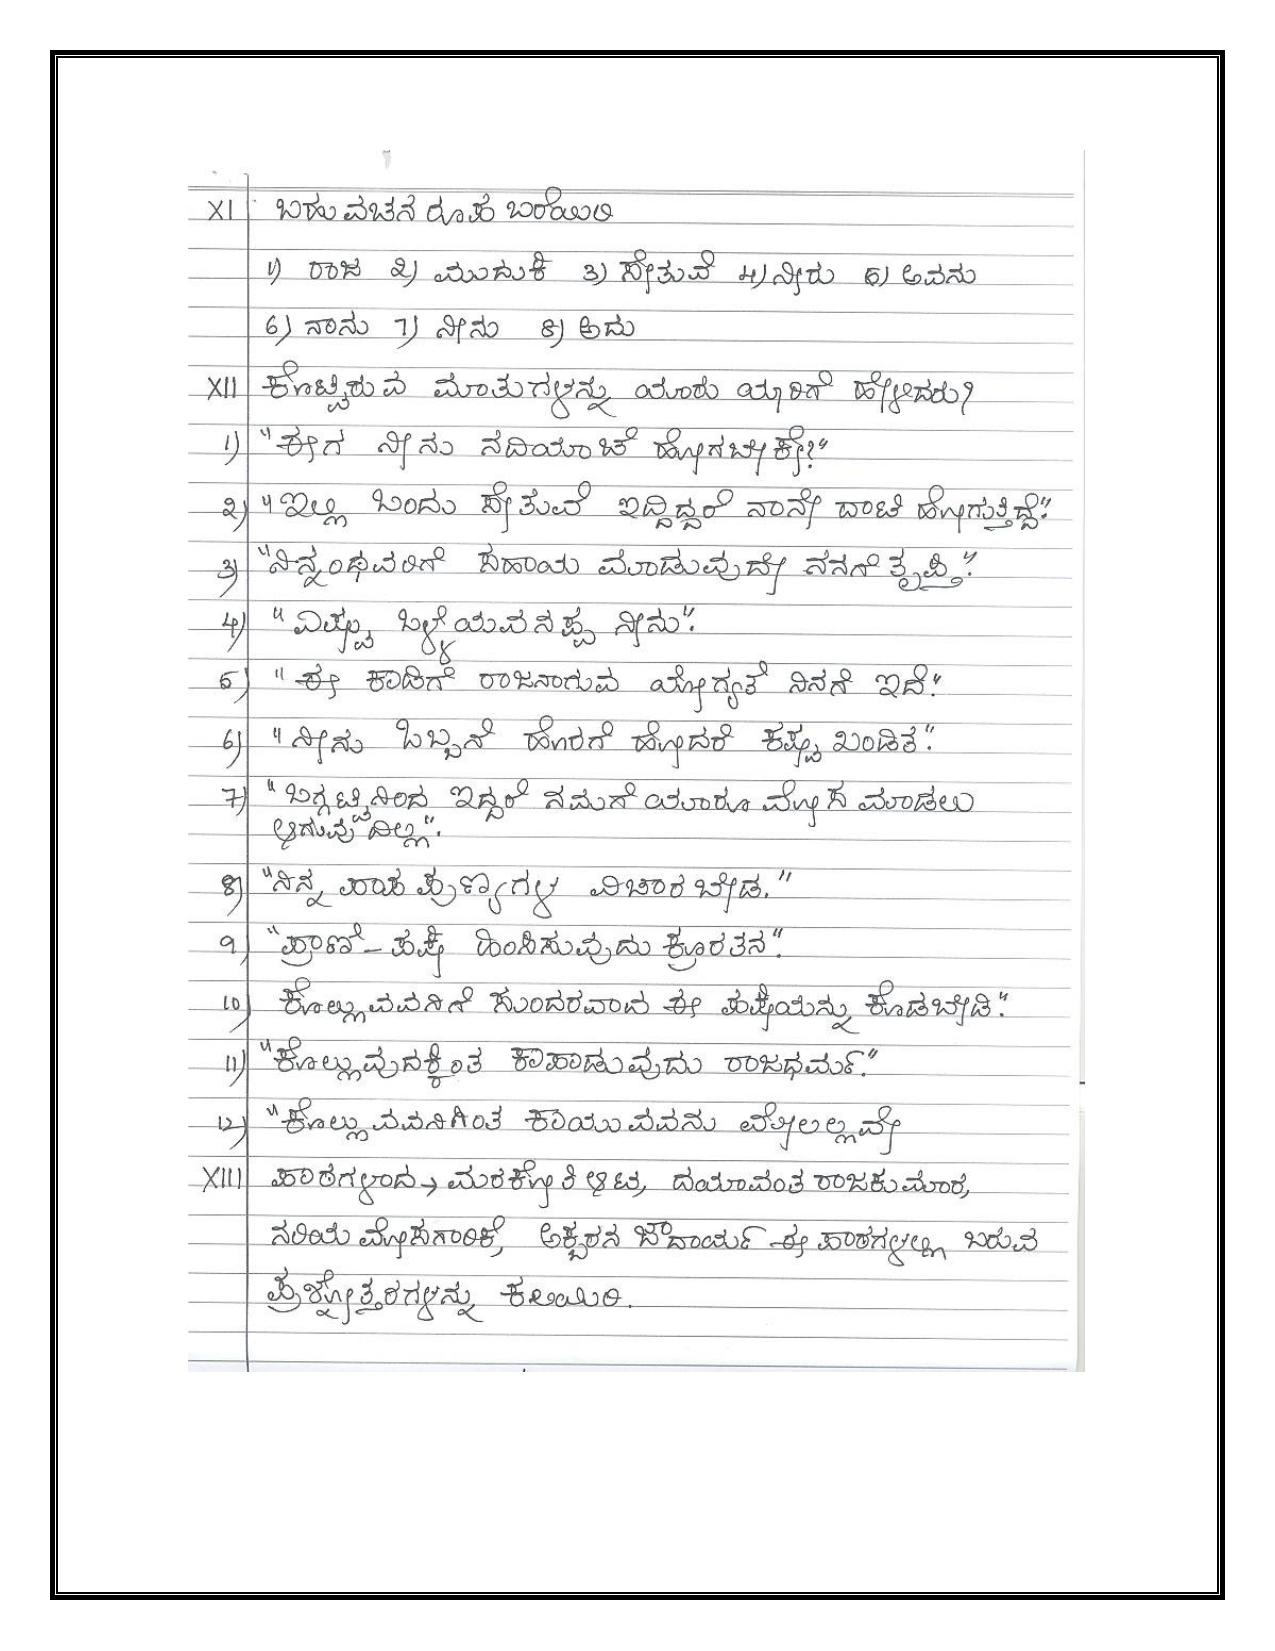 XI ಬಹುವಚನ ರೂಪ ಬರೆಯಿರಿ
೧) ರಾಜ ೨) ಮುದುಕಿ ೩) ಸೇತುವೆ ೪) ನೀರು 5) ಅವನು
6) ನಾನು 7) ನೀನು 8) ಅದು
XII ಕೊಟ್ಟಿರುವ ಮಾತುಗಳನ್ನು ಯಾರು ಯಾರಿಗೆ ಹೇಳಿದರು?
1) "ಈಗ ನೀನು ನದಿಯಾಚೆ ಹೋಗಬೇಕೇ?"
೨) "ಇಲ್ಲಿ ಒಂದು ಸೇತುವೆ ಇದ್ದಿದ್ದರೆ ನಾನೇ ದಾಟಿ ಹೋಗುತ್ತಿದ್ದೆ".
೩) "ನಿನ್ನಂಥವರಿಗೆ ಸಹಾಯ ಮಾಡುವುದೇ ನನಗೆ ತೃಪ್ತಿ".
೪) "ಎಷ್ಟು ಒಳ್ಳೆಯವನಪ್ಪ ನೀನು".
5) "ಈ ಕಾಡಿಗೆ ರಾಜನಾಗುವ ಯೋಗ್ಯತೆ ನಿನಗೆ ಇದೆ".
6) "ನೀನು ಒಬ್ಬನೆ ಹೊರಗೆ ಹೋದರೆ ಕಷ್ಟ ಖಂಡಿತ".
7) "ಒಗ್ಗಟ್ಟಿನಿಂದ ಇದ್ದರೆ ನಮಗೆ ಯಾರೂ ಮೋಸ ಮಾಡಲು
ಆಗುವುದಿಲ್ಲ".
8) "ನಿನ್ನ ಪಾಪ ಪುಣ್ಯಗಳ ವಿಚಾರ ಬೇಡ."
9) "ಪ್ರಾಣಿ-ಪಕ್ಷಿ ಹಿಂಸಿಸುವುದು ಕ್ರೂರತನ".
10) ಕೊಲ್ಲುವವನಿಗೆ ಸುಂದರವಾದ ಈ ಪಕ್ಷಿಯನ್ನು ಕೊಡಬೇಡಿ".
11) "ಕೊಲ್ಲುವುದಕ್ಕಿಂತ ಕಾಪಾಡುವುದು ರಾಜಧರ್ಮ."
12) "ಕೊಲ್ಲುವವನಿಗಿಂತ ಕಾಯುವವನು ಮೇಲಲ್ಲವೇ
XIII ಪಾಠಗಳಿಂದ → ಮರಕೋತಿ ಆಟ, ದಯಾವಂತ ರಾಜಕುಮಾರ,
ನರಿಯ ಮೋಸಗಾರಿಕೆ, ಅಕ್ಬರನ ಔದಾರ್ಯ ಈ ಪಾಠಗಳಲ್ಲಿ ಬರುವ
ಪ್ರಶ್ನೋತ್ತರಗಳನ್ನು ಕಲಿಯಿರಿ.